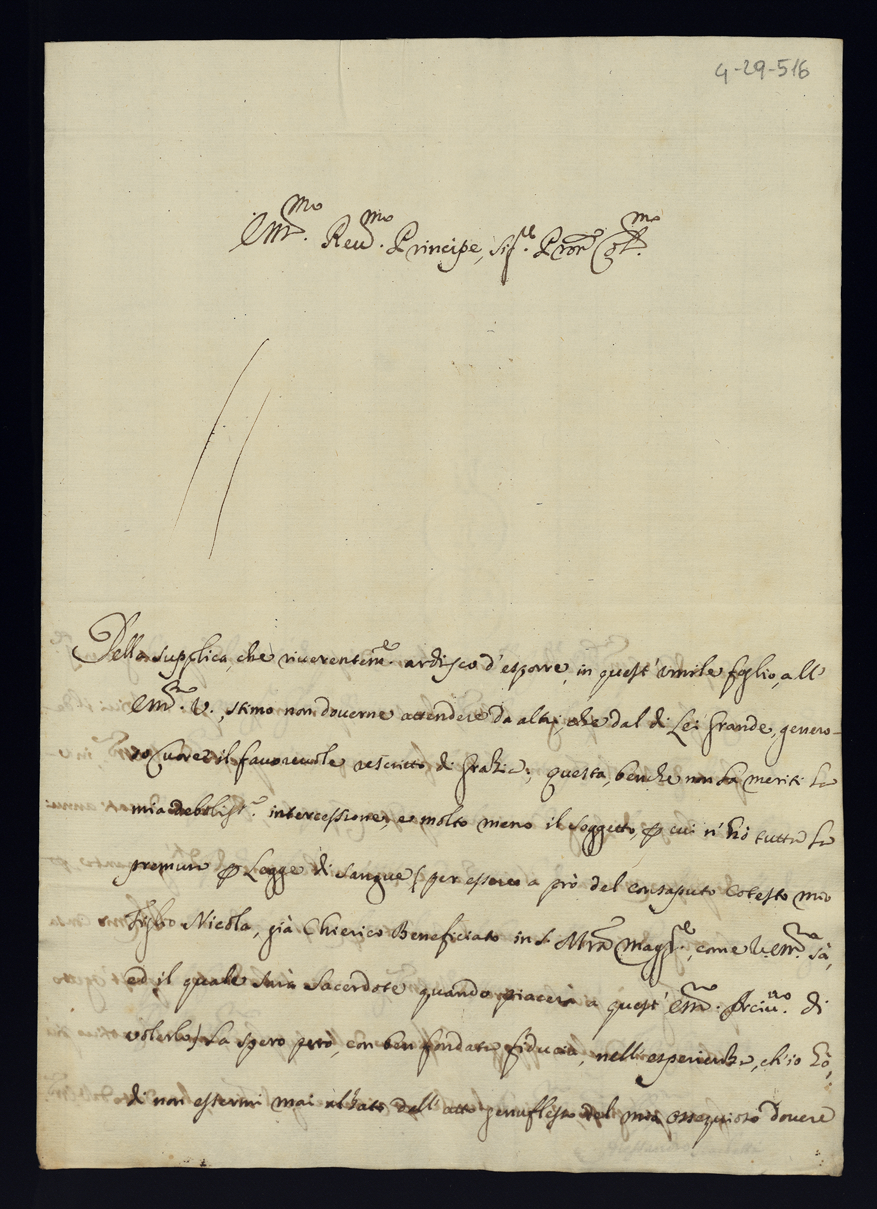 4-29-516
Em.mo Reu.mo Principe, Sig.re Pron Col.mo
Della supplica, che riuerentem.e ardisco d'esporre, in quest'umile foglio, all'
Em.za V., stimo non douerne attendere da altri, che dal di Lei grande, genero-
so Cuore il fauoreuole rescritto di grazie; questa, benche non la meriti la
mia debolis.a intercessione, e molto meno il soggetto, p cui n'hò tutta la
premura p Legge di sangue (per essere a prò del consaputo cotesto mio
Figlio Nicola, già Chierico Beneficiato in S. Mra Magg.e, come V. Em.za sà,
ed il quale sarà Sacerdote quando piacerà a quest' Em.mo Arciu.vo di
volerlo) La spero però, con ben fondata fiducia, nell'esperienza, ch'io hò,
di non essermi mai alzato dall'atto genuflesso del mio ossequioso Douere